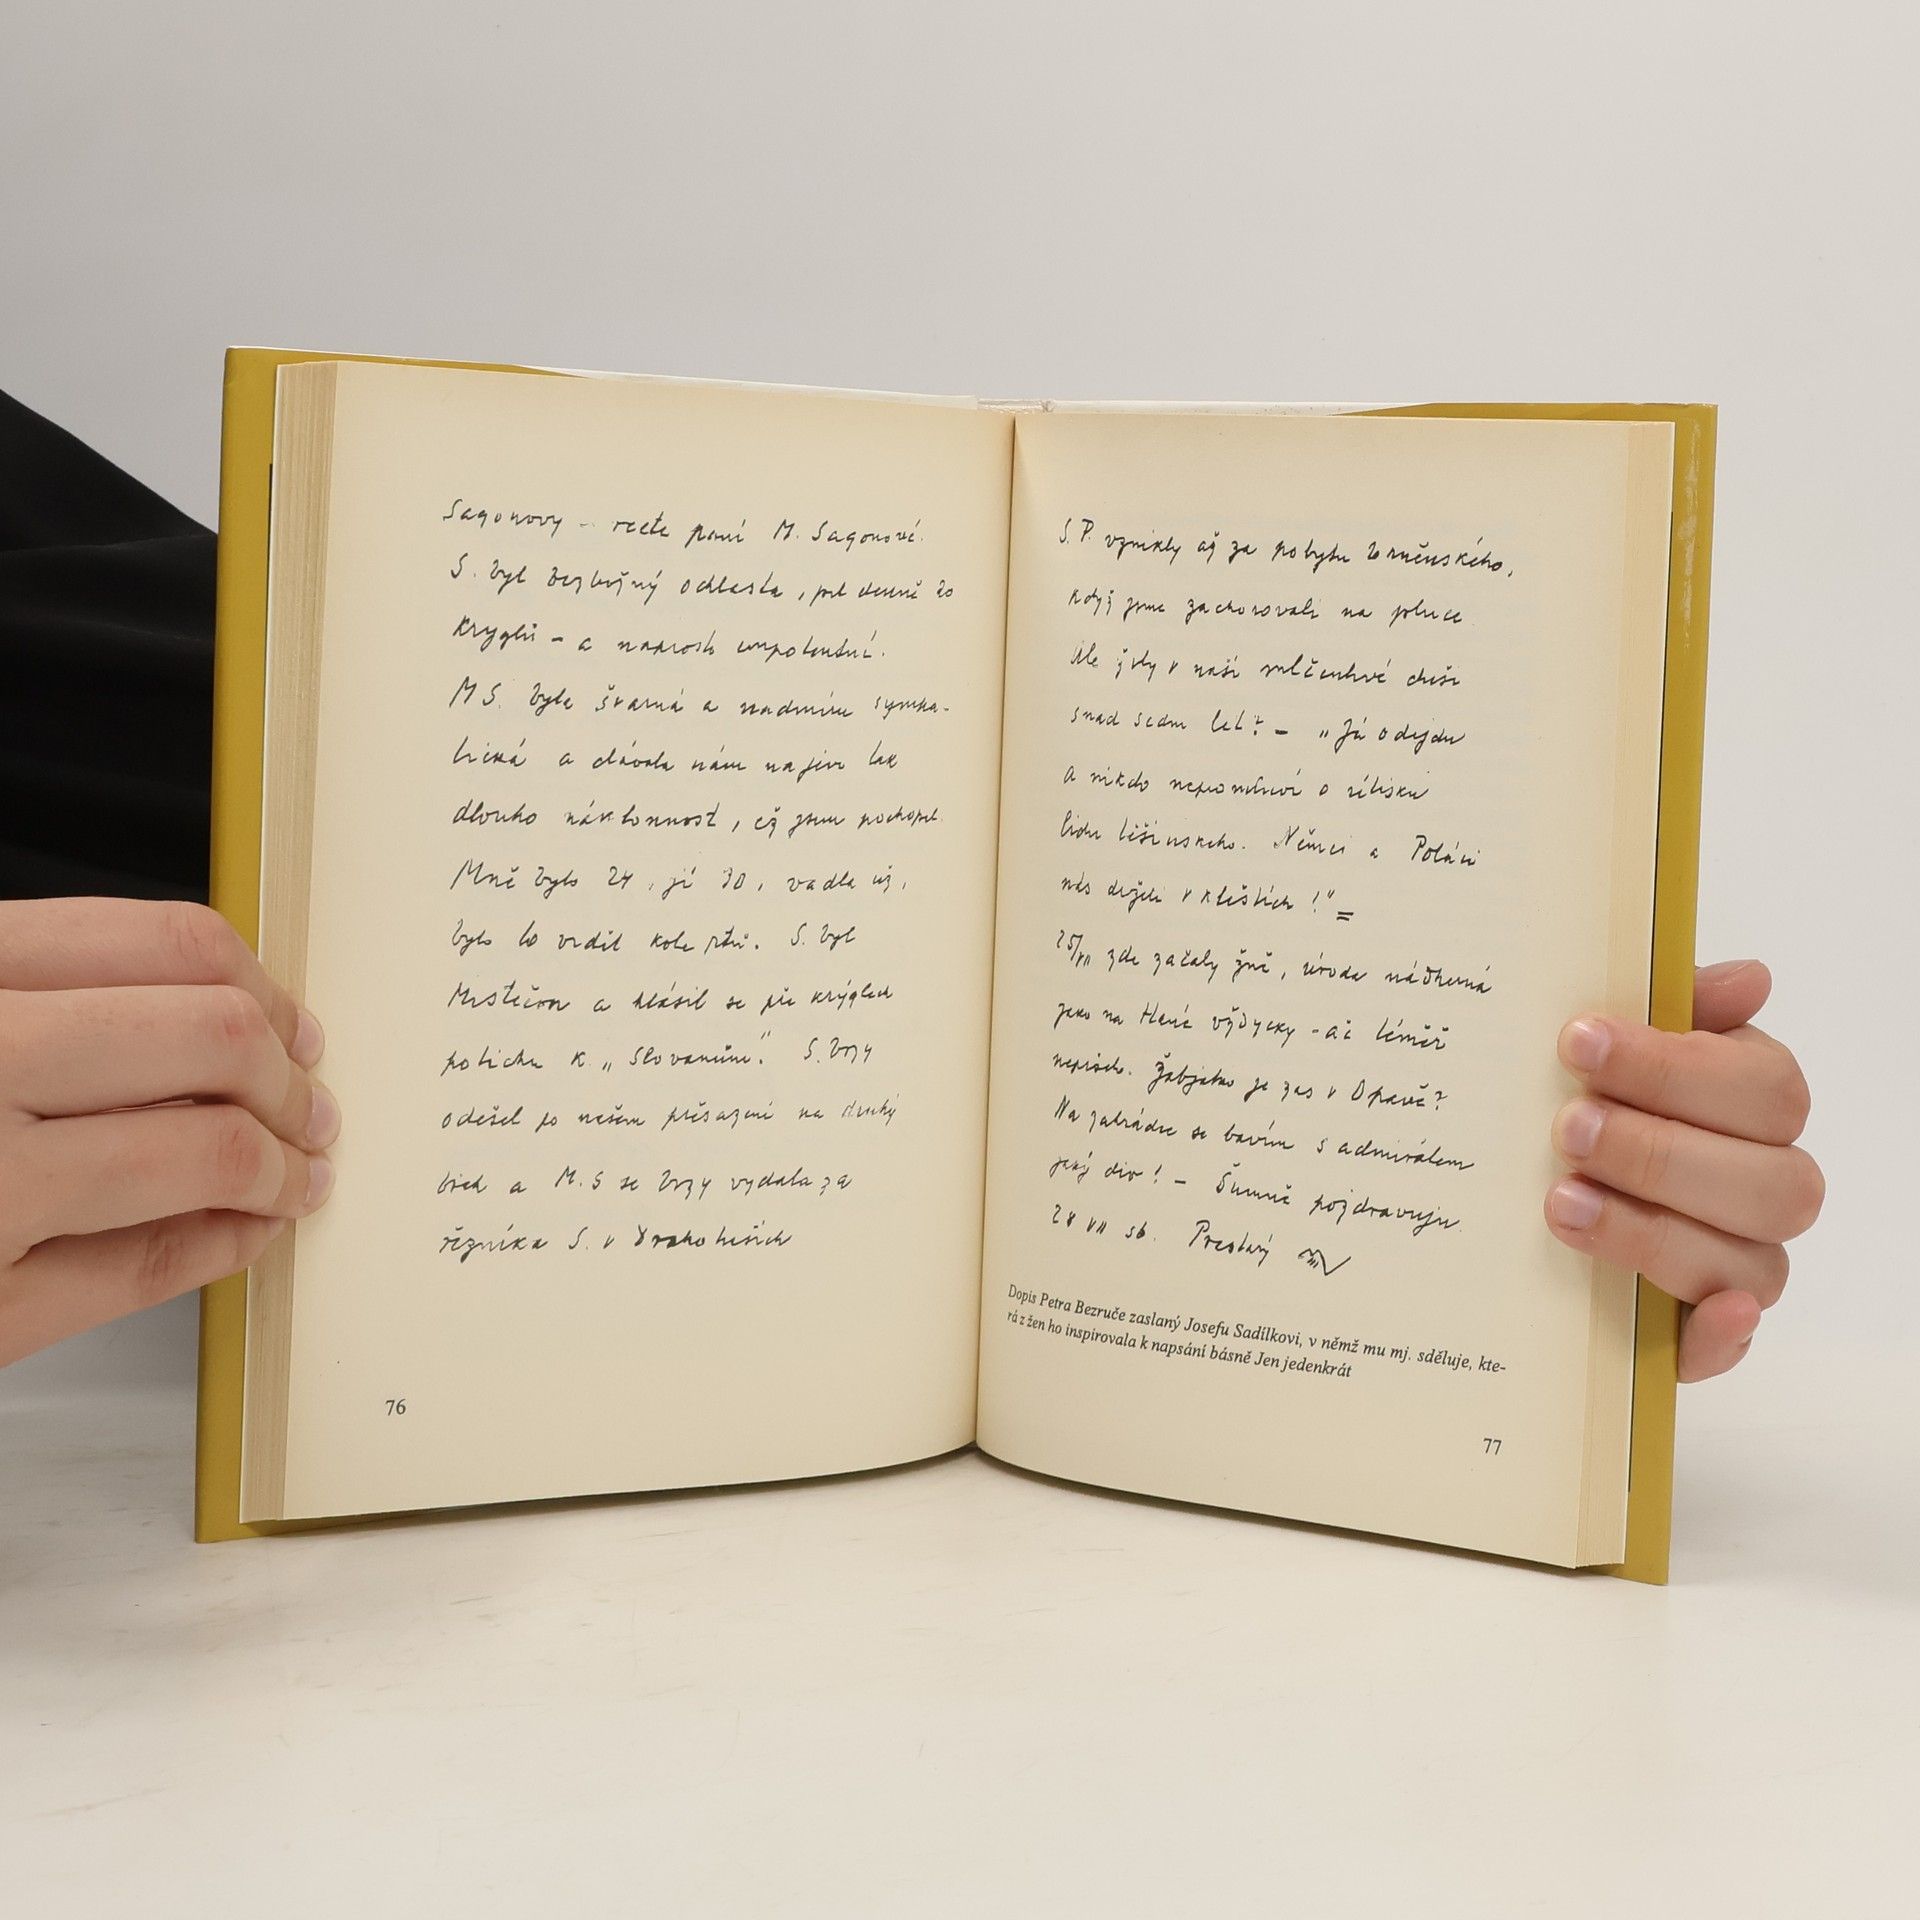 Sagonovy – recte paní M. Sagonové.
S. byl bezbožný ochlasta, pil denně 20
kryglů – a naprosto impotentní.
M S. byla švarná a nadmíru sympa-
tická a dávala nám najevo tak
dlouho náklonnost, až jsem pochopil.
Mně bylo 24, jí 30, vadla už,
bylo to vidět kole rtů. S. byl
a hlásil se při krýglech
potichu k „Slovanům." S. brzy
odešel po našem přesazení na druhý
břeh a M. S se brzy vydala za
řezníka S. v
76
S. P. vznikly až za pobytu brněnského,
když jsme zachorovali na plíce
Ale žily v naší mlčenlivé duši
snad sedm let? – „Já odejdu
a nikdo nepromluví o útisku
lidu těšínského. Němci a Poláci
nás drželi v kleštích!" =
25/VII zde začaly žně, úroda nádherná
jako na Hané vždycky – ač téměř
neprší. je zas v Opavě?
Na zahrádce se bavím s admirálem
jaký div! – Šumně pozdravuju
28 VII 56. Prastarý
Dopis Petra Bezruče zaslaný Josefu Sadílkovi, v němž mu mj. sděluje, kte-
rá z žen ho inspirovala k napsání básně Jen jedenkrát
77